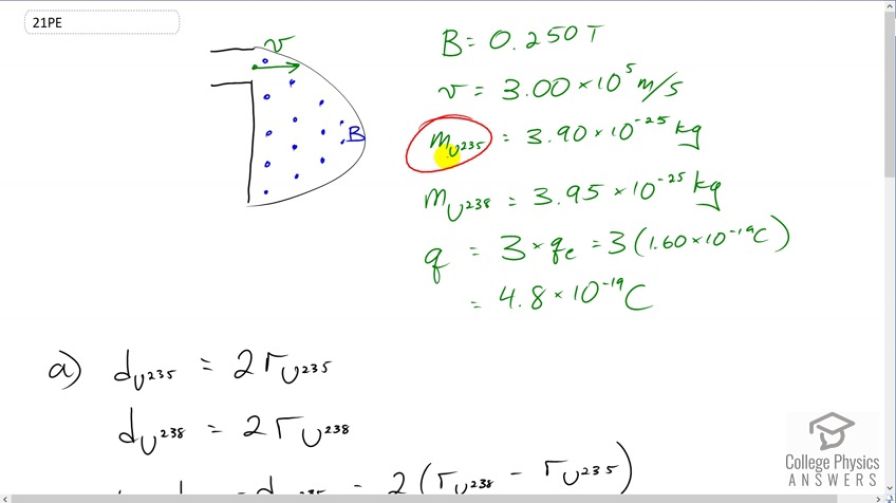 21PE
v
B
B = 0.250 T
v = 3.00 × 10⁵ m/s
m_U²³⁵ = 3.90 × 10⁻²⁵ kg
m_U²³⁸ = 3.95 × 10⁻²⁵ kg
q = 3 × qₑ = 3(1.60 × 10⁻¹⁹ C)
= 4.8 × 10⁻¹⁹ C
a) d_U²³⁵ = 2 r_U²³⁵
d_U²³⁸ = 2 r_U²³⁸
= 2(r_U²³⁸ - r_U²³⁵)
College Physics
ANSWERS